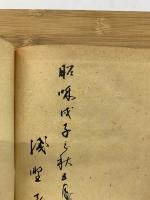 昭和戊子之秋五月
浅野